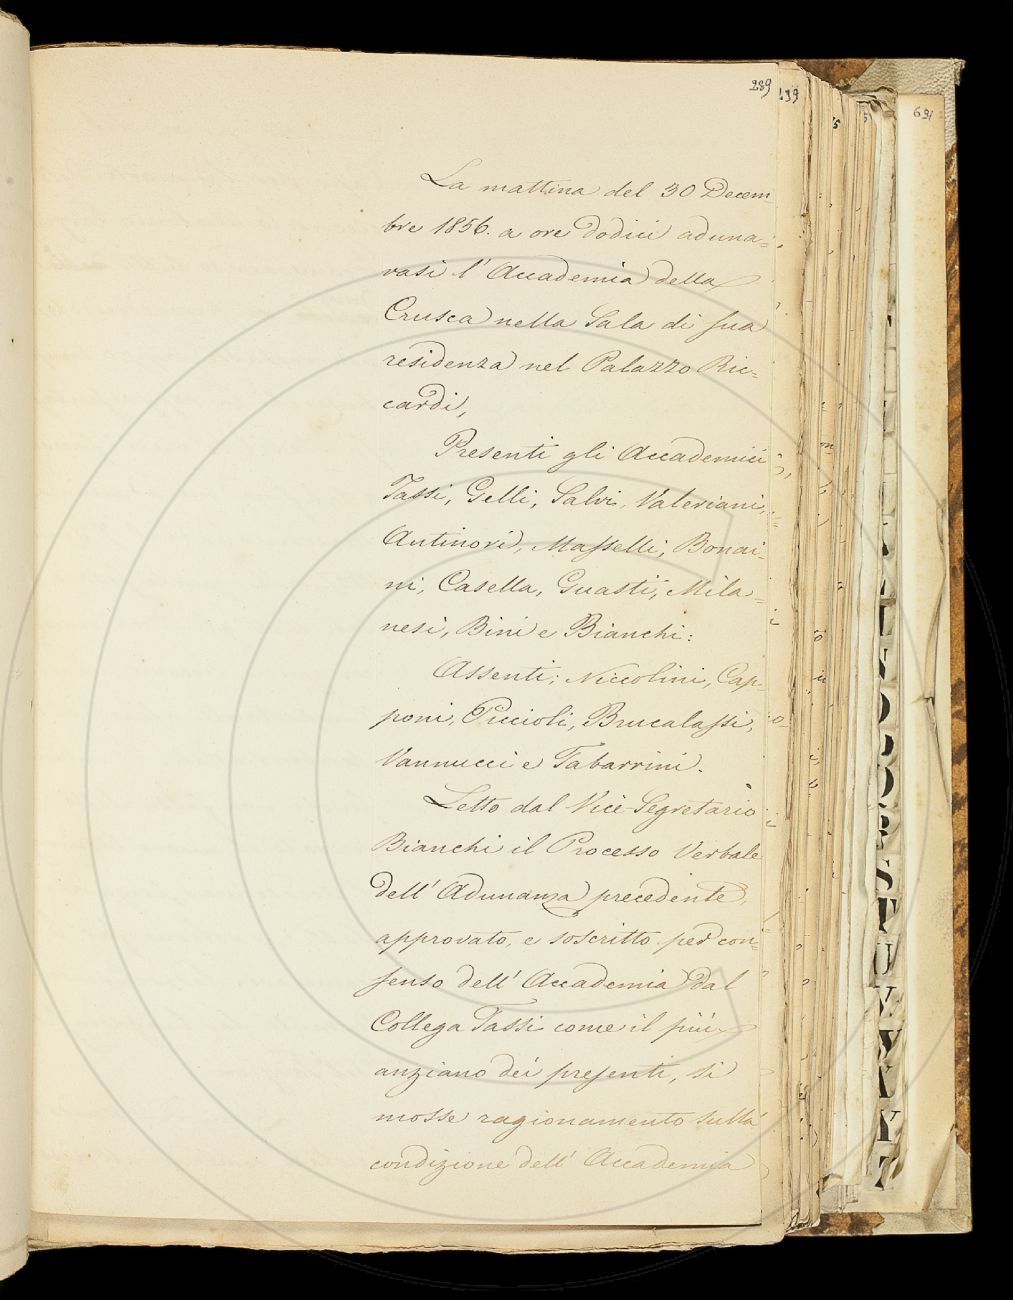 289
439
691
La mattina del 30 Decem-
bre 1856. a ore dodici aduna-
vasi l' Accademia della
Crusca nella Sala di sua
residenza nel Palazzo Ric-
cardi,
Presenti gli Accademici
Tassi, Gelli, Salvi, Valeriani,
Antinori, Masselli, Bonai-
ni, Casella, Guasti, Mila-
nesi, Bini e Bianchi:
Assenti; Niccolini, Cap-
poni, Piccioli, Brucalassi,
Vannucci e Tabarrini.
Letto dal Vice-Segretario
Bianchi il Processo Verbale
dell' Adunanza precedente,
approvato, e soscritto per con-
senso dell' Accademia dal
Collega Tassi come il più
anziano dei presenti, si
mosse ragionamento sulla
condizione dell' Accademia